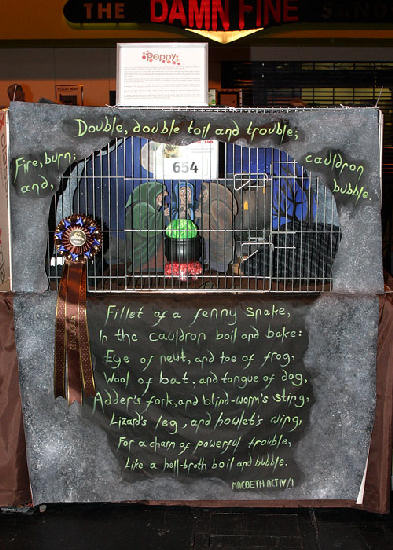 THE DAMN FINE
Penny
Double, double toil and trouble;
Fire, burn; cauldron
and, bubble.
654
Fillet of a fenny snake,
In the cauldron boil and bake:
Eye of newt, and toe of frog,
Wool of bat, and tongue of dog,
Adder's fork, and blind-worm's sting,
Lizard's leg, and howlet's wing,
For a charm of powerful trouble,
Like a hell-broth boil and bubble.
MACBETH ACT IV/1